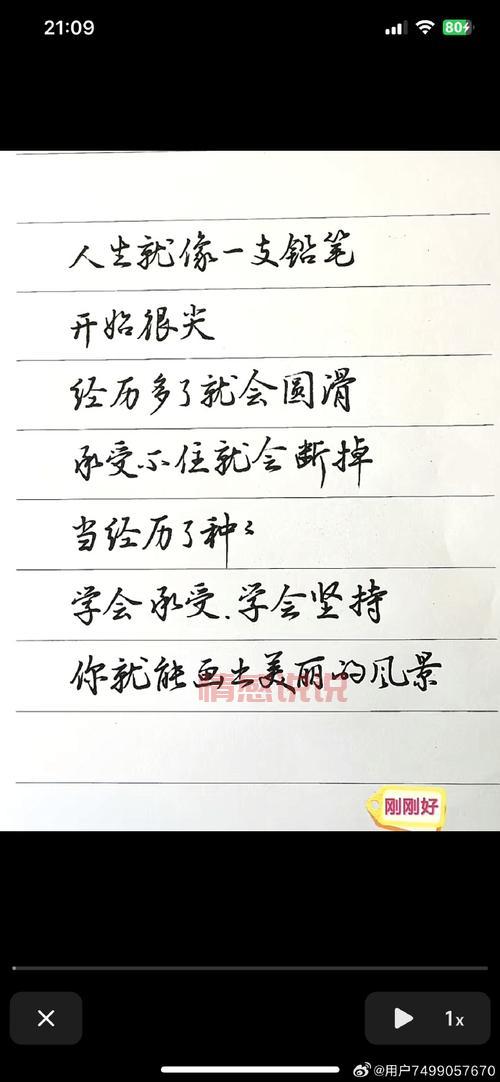 21:09
80
人生就像一支铅笔
开始很尖
经历多了就会圆滑
承受不住就会断掉
当经历了种〻
学会承受.学会坚持
你就能画出美丽的风景
情感说说
刚刚好
1x
@用户7499057670